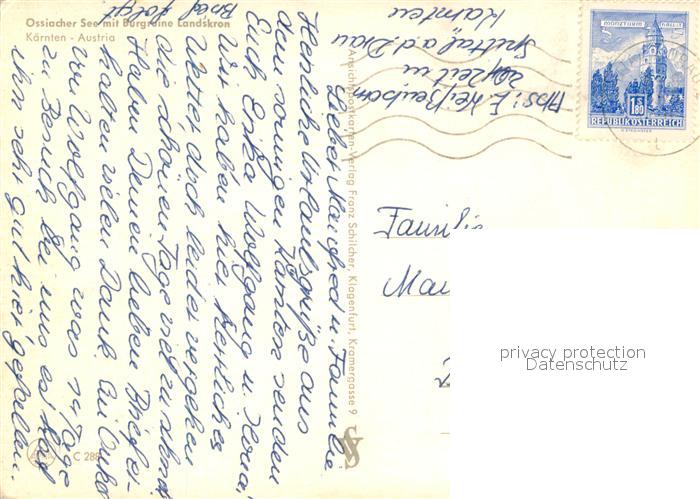 Ossiacher See mit Burgruine Landskron
Kärnten - Austria
Lieber Manfred u. Familie
Herzliche Urlaubsgrüße aus
dem sonnigen Kärnten senden
Euch Erika, Wolfgang u. Ilona.
Wir haben hier herrliches
Wetter doch leider vergehen
die schönen Tage viel zu schnell
Haben Deinen lieben Brief
halten vielen Dank. Ein Onkel
von Wolfgang war 14 Tage
zu Besuch bei uns es hat
ihn sehr gut hier gefallen.
Brief folgt
Abs: E.
zeit in
Spittal a.d. Drau
Kärnten
Ansichtspostkarten-Verlag Franz Schilcher, Klagenfurt, Kramergasse 9
C 288
Familie
MÜNZTURM
TIROL
S
1.80
REPUBLIK ÖSTERREICH
privacy protection
Datenschutz